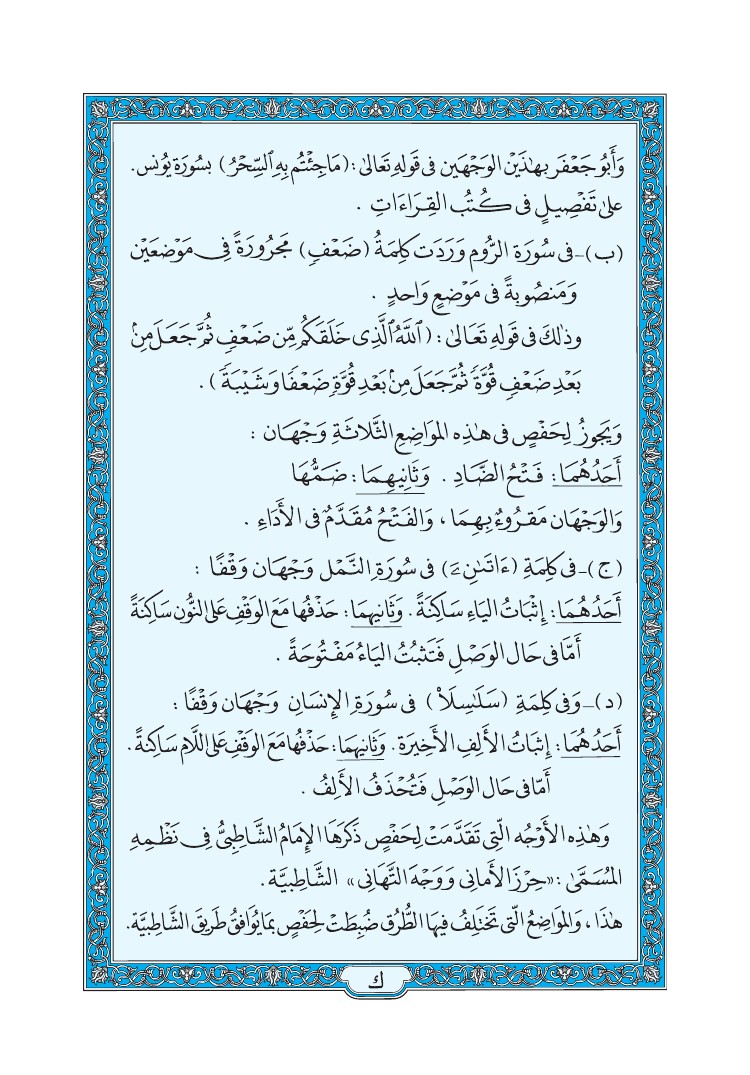 وَأَبُو جَعْفَرٍ بِهَٰذَيْنِ الوَجْهَيْنِ فِى قَولِهِ تَعَالىٰ : (مَا جِئْتُم بِهِ ٱلسِّحْرُ) بِسُورَةِ يُونُس.
عَلىٰ تَفْصِيلٍ فِى كُتُبِ القِرَاءَاتِ .
(ب) ـ فِى سُورَةِ الرُّومِ وَرَدَت كَلِمَةُ (ضَعْفٍ) مَجْرُورَةً فِى مَوْضِعَيْن
وَمَنصُوبَةً فِى مَوْضِعٍ وَاحدٍ .
وذٰلكَ فِى قَولِهِ تَعَالىٰ : (ٱللَّهُ ٱلَّذِى خَلَقَكُم مِّن ضَعْفٍ ثُمَّ جَعَلَ مِنۢ
بَعْدِ ضَعْفٍ قُوَّةً ثُمَّ جَعَلَ مِنۢ بَعْدِ قُوَّةٍ ضَعْفًا وَشَيْبَةً) .
وَيَجُوزُ لِحَفْصٍ فِى هَٰذِهِ المَوَاضِعِ الثَّلَاثَةِ وَجْهَان :
أَحَدُهُمَا : فَتْحُ الضَّادِ . وَثَانِيهِمَا : ضَمُّهَا
وَالوَجْهَان مَقرُوءٌ بِهِمَا ، وَالفَتْحُ مُقَدَّمٌ فِى الأَدَاءِ .
(ج) ـ فِى كَلِمَةِ (ءَاتَىٰنِۦَ) فِى سُورَةِ النَّمْلِ وَجْهَان وَقْفًا :
أَحَدُهُمَا : إِثْبَاتُ اليَاءِ سَاكِنَةً . وَثَانِيهِمَا : حَذْفُهَا مَعَ الوَقْفِ عَلى النُّونِ سَاكِنَةً
أَمَّا فِى حَالِ الوَصْلِ فَتَثْبُتُ اليَاءُ مَفْتُوحَةً .
(د) ـ وَفِى كَلِمَةِ (سَلَٰسِلَا۟) فِى سُورَةِ الإِنسَانِ وَجْهَان وَقْفًا :
أَحَدُهُمَا : إِثْبَاتُ الأَلِفِ الأَخِيرَة . وَثَانِيهِمَا : حَذْفُهَا مَعَ الوَقْفِ عَلى اللَّامِ سَاكِنَةً .
أَمَّا فِى حَالِ الوَصْلِ فَتُحْذَفُ الأَلِفُ .
وَهَٰذِهِ الأَوْجُه الَّتِى تَقَدَّمَتْ لِحَفْصٍ ذَكَرَهَا الإِمَامُ الشَّاطِبِيُّ فِى نَظْمِهِ
المُسَمَّىٰ : «حِرْزَ الأَمَانِى وَوَجْهَ التَّهَانِى» الشَّاطِبِيَّة .
هٰذَا ، وَالمَوَاضِعُ الَّتِى تَخْتَلِفُ فِيهَا الطُّرُق ضُبِطَتْ لِحَفْصٍ بِمَا يُوَافِقُ طَرِيقَ الشَّاطِبِيَّة .
ك